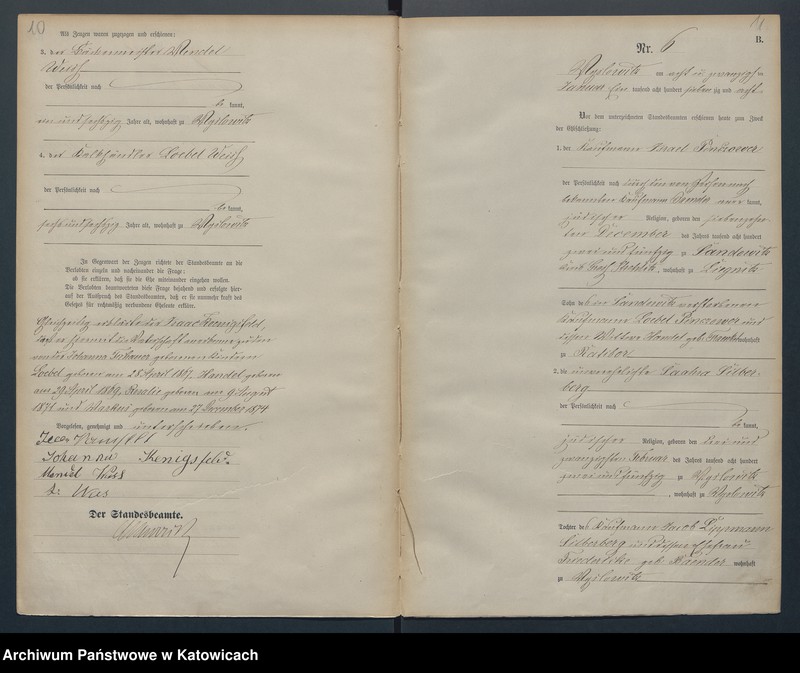 10
Als Zeugen waren zugezogen und erschienen:
3. der Bäckermeister Mendel
Weiß
der Persönlichkeit nach
be kannt,
ein und sechszig Jahre alt, wohnhaft zu Myslowitz
4. der Kalkhändler Loebel Weiß
der Persönlichkeit nach
be kannt,
sechs und sechzig Jahre alt, wohnhaft zu Myslowitz
In Gegenwart der Zeugen richtete der Standesbeamte an die
Verlobten einzeln und nacheinander die Frage:
ob sie erklären, daß sie die Ehe miteinander eingehen wollen.
Die Verlobten beantworteten diese Frage bejahend und erfolgte hier-
auf der Ausspruch des Standesbeamten, daß er sie nunmehr kraft des
Gesetzes für rechtmäßig verbundene Eheleute erkläre.
Gleichzeitig erklärte der Isaac Koenigsfeld,
daß er hiermit die Vaterschaft anerkenne zu den
von der Johanna geborenen Kindern
Loebel geboren am 28 April 1867, Handel geboren
am 29 April 1869, Rosalie geboren am 9 August
1871 und Markus geboren am 27 December 1874
Vorgelesen, genehmigt und unterschrieben.
Johanna Kenigsfeld.
Mendel Weiß
L. Was
Der Standesbeamte.
11
B.
Nr. 6
Myslowitz am acht u zwanzigsten
Januar Ein tausend acht hundert sieben zig und acht
Vor dem unterzeichneten Standesbeamten erschienen heute zum Zweck
der Eheschließung:
1. der Kaufmann Israel Pinkower
der Persönlichkeit nach durch den von Person nach
bekannten Kaufmann kannt,
jüdischer Religion, geboren den siebenzehn
ten December des Jahres tausend acht hundert
zwei und fünfzig zu Sandowitz
Kreis Groß Strehlitz, wohnhaft zu Liegnitz
Sohn des in Sandowitz verstorbenen
Kaufmann Loebel Pinkower und
dessen Wittwe Handel geb. wohnhaft
zu Ratibor
2. die unverehelichte Saahra Silber-
berg
der Persönlichkeit nach
be kannt,
jüdischer Religion, geboren den drei und
zwanzigsten Februar des Jahres tausend acht hundert
zwei und fünfzig zu Myslowitz
, wohnhaft zu Myslowitz
Tochter des Kaufmann Jacob Lippmann
Silberberg und dessen Ehefrau
Friederike geb. wohnhaft
zu Myslowitz
Archiwum Państwowe w Katowicach